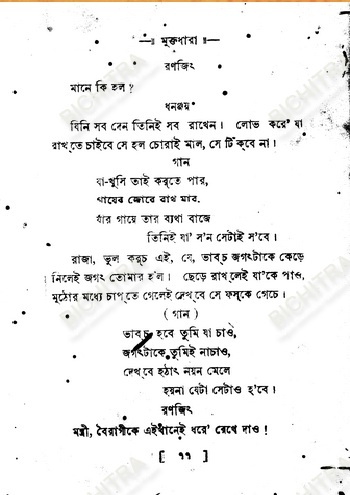 মুক্তধারা
রণজিৎ
মানে কি হল?
ধনঞ্জয়
যিনি সব দেন তিনিই সব রাখেন। লোভ করে' যা
রাখ্‌তে চাইবে সে হল চোরাই মাল, সে টিঁকবে না।
গান
যা-খুসি তাই করতে পার,
গায়ের জোরে রাখ মার,
যাঁর গায়ে তার ব্যথা বাজে
তিনিই যা স'ন সেটাই স'বে।
রাজা, ভুল করচ এই, যে, ভাবচ জগৎটাকে কেড়ে
নিলেই জগৎ তোমার হ'ল। ছেড়ে রাখ্‌লেই যা'কে পাও,
মুঠোর মধ্যে চাপ্‌তে গেলেই দেখ্‌বে সে ফস্‌কে গেচে।
( গান )
ভাবচ হবে তুমি যা চাও,
জগৎটাকে তুমিই নাচাও,
দেখ্‌বে হঠাৎ নয়ন মেলে
হয়না যেটা সেটাও হ'বে।
রণজিৎ
মন্ত্রী, বৈরাগীকে এইখানেই ধরে' রেখে দাও!
[ ৭৭ ]
BICHITRA